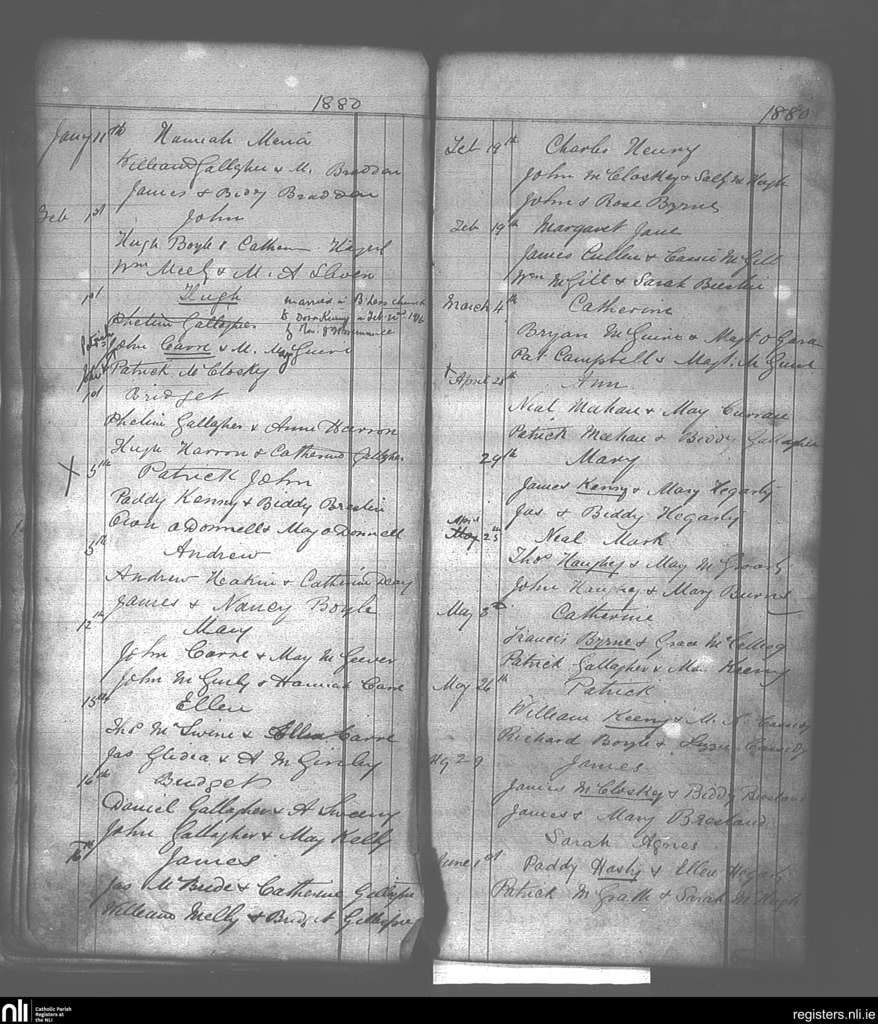 1880
Jany 11th Hannah Maria
William Gallagher & M. Braddan
James & Biddy Braddan
Feb 1st John
Hugh Boyle & Catherine
Wm Meely & M. A Slaven
1st Hugh
married in church
Phelim Gallagher
John Carre & M. McGuire
Patrick McClosky
1st Bridget
Phelim Gallagher & Anne Harron
Hugh Harron & Catherine Gallagher
X 5th Patrick John
Paddy Kenny & Biddy Breslin
Owen O'Donnell & May O'Donnell
5th Andrew
Andrew & Catherine
James & Nancy Boyle
12th Mary
John Carre & May McGeever
John McGinly & Hannah Carre
15th Ellen
Thos McSwine & Ellen Carre
Jas & A McGinley
16th Bridget
Daniel Gallagher & A Sweeny
John Gallagher & May Kelly
16th James
Jas McBride & Catherine Gillespie
William Melly & Bridget Gillespie
1880
Feb 19th Charles Henry
John McCloskey & Sally McHugh
John & Rose Byrne
Feb 19th Margaret Jane
James Cullen & Cassie McGill
Wm McGill & Sarah
March 4th Catherine
Bryan McGuire & Magt O'Gara
Pat Campbell & Magt. McGuire
X April 28th Ann
Neal Meehan & May Curran
Patrick Meehan & Biddy Gallagher
29th Mary
James Kenny & Mary Hegarty
Jas & Biddy Hegarty
April 25th Neal Mark
Thos Haughey & May McGroarty
John Haughey & Mary Burns
May 3rd Catherine
Francis Byrne & Grace McCallig
Patrick Gallagher & Keeny
May 26th Patrick
William Keeny & M. A. Cassidy
Richard Boyle & Lizzie Cassidy
29 James
James McCloskey & Biddy Bresland
James & Mary Bresland
Sarah Agnes
June 1st Paddy Hasty & Ellen Hegarty
Patrick McGrath & Sarah McHugh
nli
Catholic Parish
Registers at
the NLI
registers.nli.ie